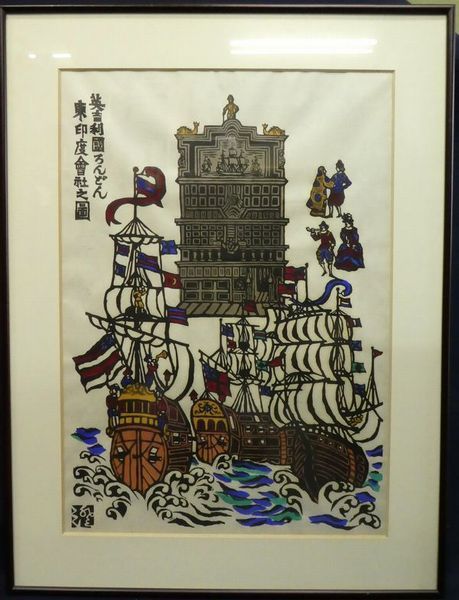 英吉利國ろんどん
東印度會社之圖